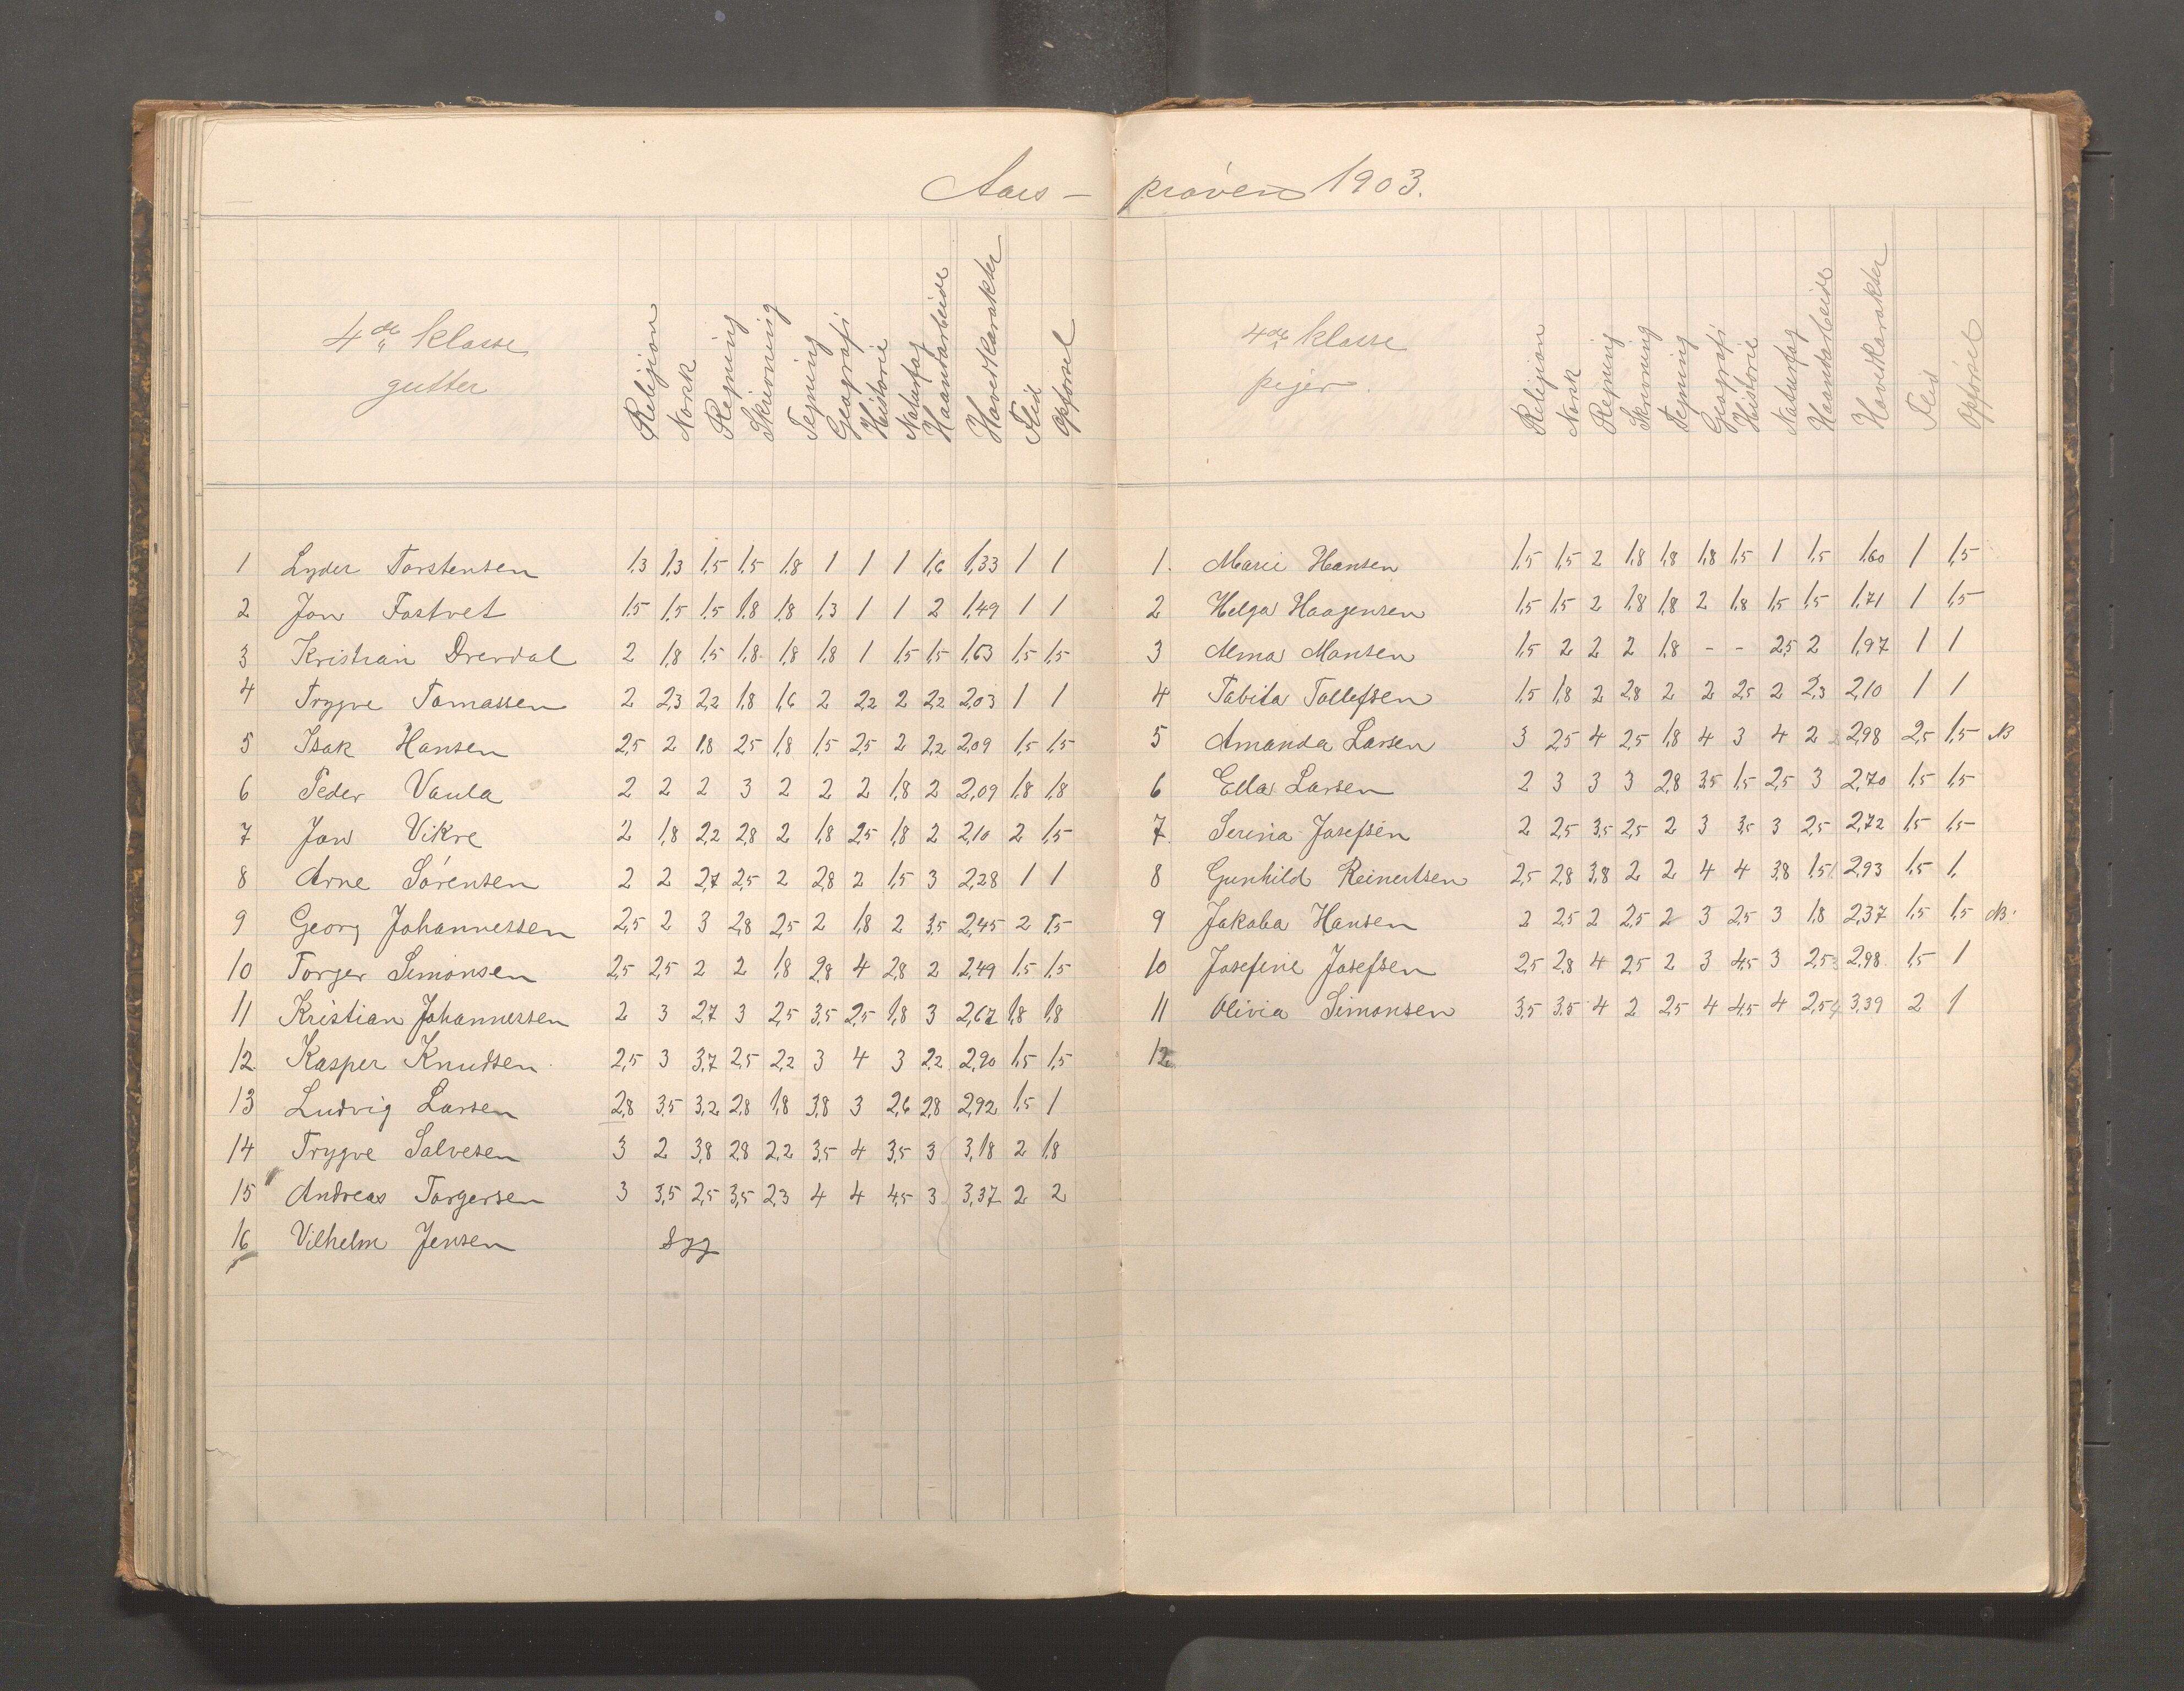 Aars- prøven 1903.
4de klasse
gutter
Religion Norsk Regning Skrivning Tegning Geografi Historie Naturfag Haandarbeide Hovedkarakter Flid Opførsel
1 Lyder Torstensen 1,3 1,3 1,5 1,5 1,8 1 1 1 1,6 1,33 1 1
2 Jon Fostvet 1,5 1,5 1,5 1,8 1,8 1,3 1 1 2 1,49 1 1
3 Kristian Drevdal 2 1,8 1,5 1,8 1,8 1,8 1 1,5 1,5 1,63 1,5 1,5
4 Trygve Tomassen 2 2,3 2,2 1,8 1,6 2 2,2 2 2,2 2,03 1 1
5 Isak Hansen 2,5 2 1,8 2,5 1,8 1,5 2,5 2 2,2 2,09 1,5 1,5
6 Peder Vaula 2 2 2 3 2 2 2 1,8 2 2,09 1,8 1,8
7 Jon Vikre 2 1,8 2,2 2,8 2 1,8 2,5 1,8 2 2,10 2 1,5
8 Arne Sørensen 2 2 2,7 2,5 2 2,8 2 1,5 3 2,28 1 1
9 Georg Johannessen 2,5 2 3 2,8 2,5 2 1,8 2 3,5 2,45 2 1,5
10 Torger Simonsen 2,5 2,5 2 2 1,8 2,8 4 2,8 2 2,49 1,5 1,5
11 Kristian Johannessen 2 3 2,7 3 2,5 3,5 2,5 1,8 3 2,67 1,8 1,8
12 Kasper Knudsen 2,5 3 3,7 2,5 2,2 3 4 3 2,2 2,90 1,5 1,5
13 Ludvig Larsen 2,8 3,5 3,2 2,8 1,8 3,8 3 2,6 2,8 2,92 1,5 1
14 Trygve Salvesen 3 2 3,8 2,8 2,2 3,5 4 3,5 3 3,18 2 1,8
15 Andreas Torgersen 3 3,5 2,5 3,5 2,3 4 4 4,5 3 3,37 2 2
16 Vilhelm Jensen Syg
4de klasse
piger.
Religion Norsk Regning Skrivning Tegning Geografi Historie Naturfag Haandarbeide Hovedkarakter Flid Opførsel
1. Marie Hansen 1,5 1,5 2 1,8 1,8 1,8 1,5 1 1,5 1,60 1 1,5
2 Helga Haagensen 1,5 1,5 2 1,8 1,8 2 1,8 1,5 1,5 1,71 1 1,5
3 Alma Monsen 1,5 2 2 2 1,8 - - 2,5 2 1,97 1 1
4 Tabita Tollefsen 1,5 1,8 2 2,8 2 2 2,5 2 2,3 2,10 1 1
5 Amanda Larsen 3 2,5 4 2,5 1,8 4 3 4 2 2,98 2,5 1,5 NB
6 Ella Larsen 2 3 3 3 2,8 3,5 1,5 2,5 3 2,70 1,5 1,5
7. Serina Josefsen 2 2,5 3,5 2,5 2 3 3,5 3 2,5 2,72 1,5 1,5
8 Gunhild Reinertsen 2,5 2,8 3,8 2 2 4 4 3,8 1,5 2,93 1,5 1,
9 Jakoba Hansen 2 2,5 2 2,5 2 3 2,5 3 1,8 2,37 1,5 1,5 NB.
10 Josefine Josefsen 2,5 2,8 4 2,5 2 3 4,5 3 2,5 2,98 1,5 1
11 Olivia Simonsen 3,5 3,5 4 2 2,5 4 4,5 4 2,5 3,39 2 1
12